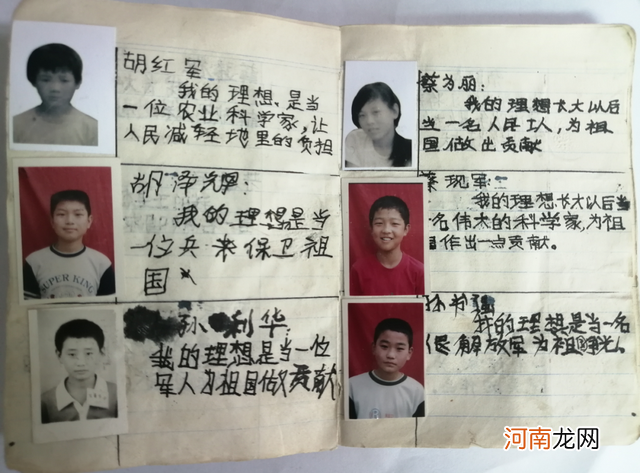 胡红军
我的理想,是当
一位农业科学家,让
人民减轻地里的负担
SUPER KING
胡泽
我的理想是当
一位兵来保卫祖
国
孙利华
我的理想是当一位
军人为祖国做贡献
蔡为丽:
我的理想长大以后
当一名人民工人,为祖
国做出贡献
现军:
我的理想长大以后当
名伟大的科学家,为祖
国作出一点贡献。
孙
我的理想是当一名
解放军为祖国
河南龙网